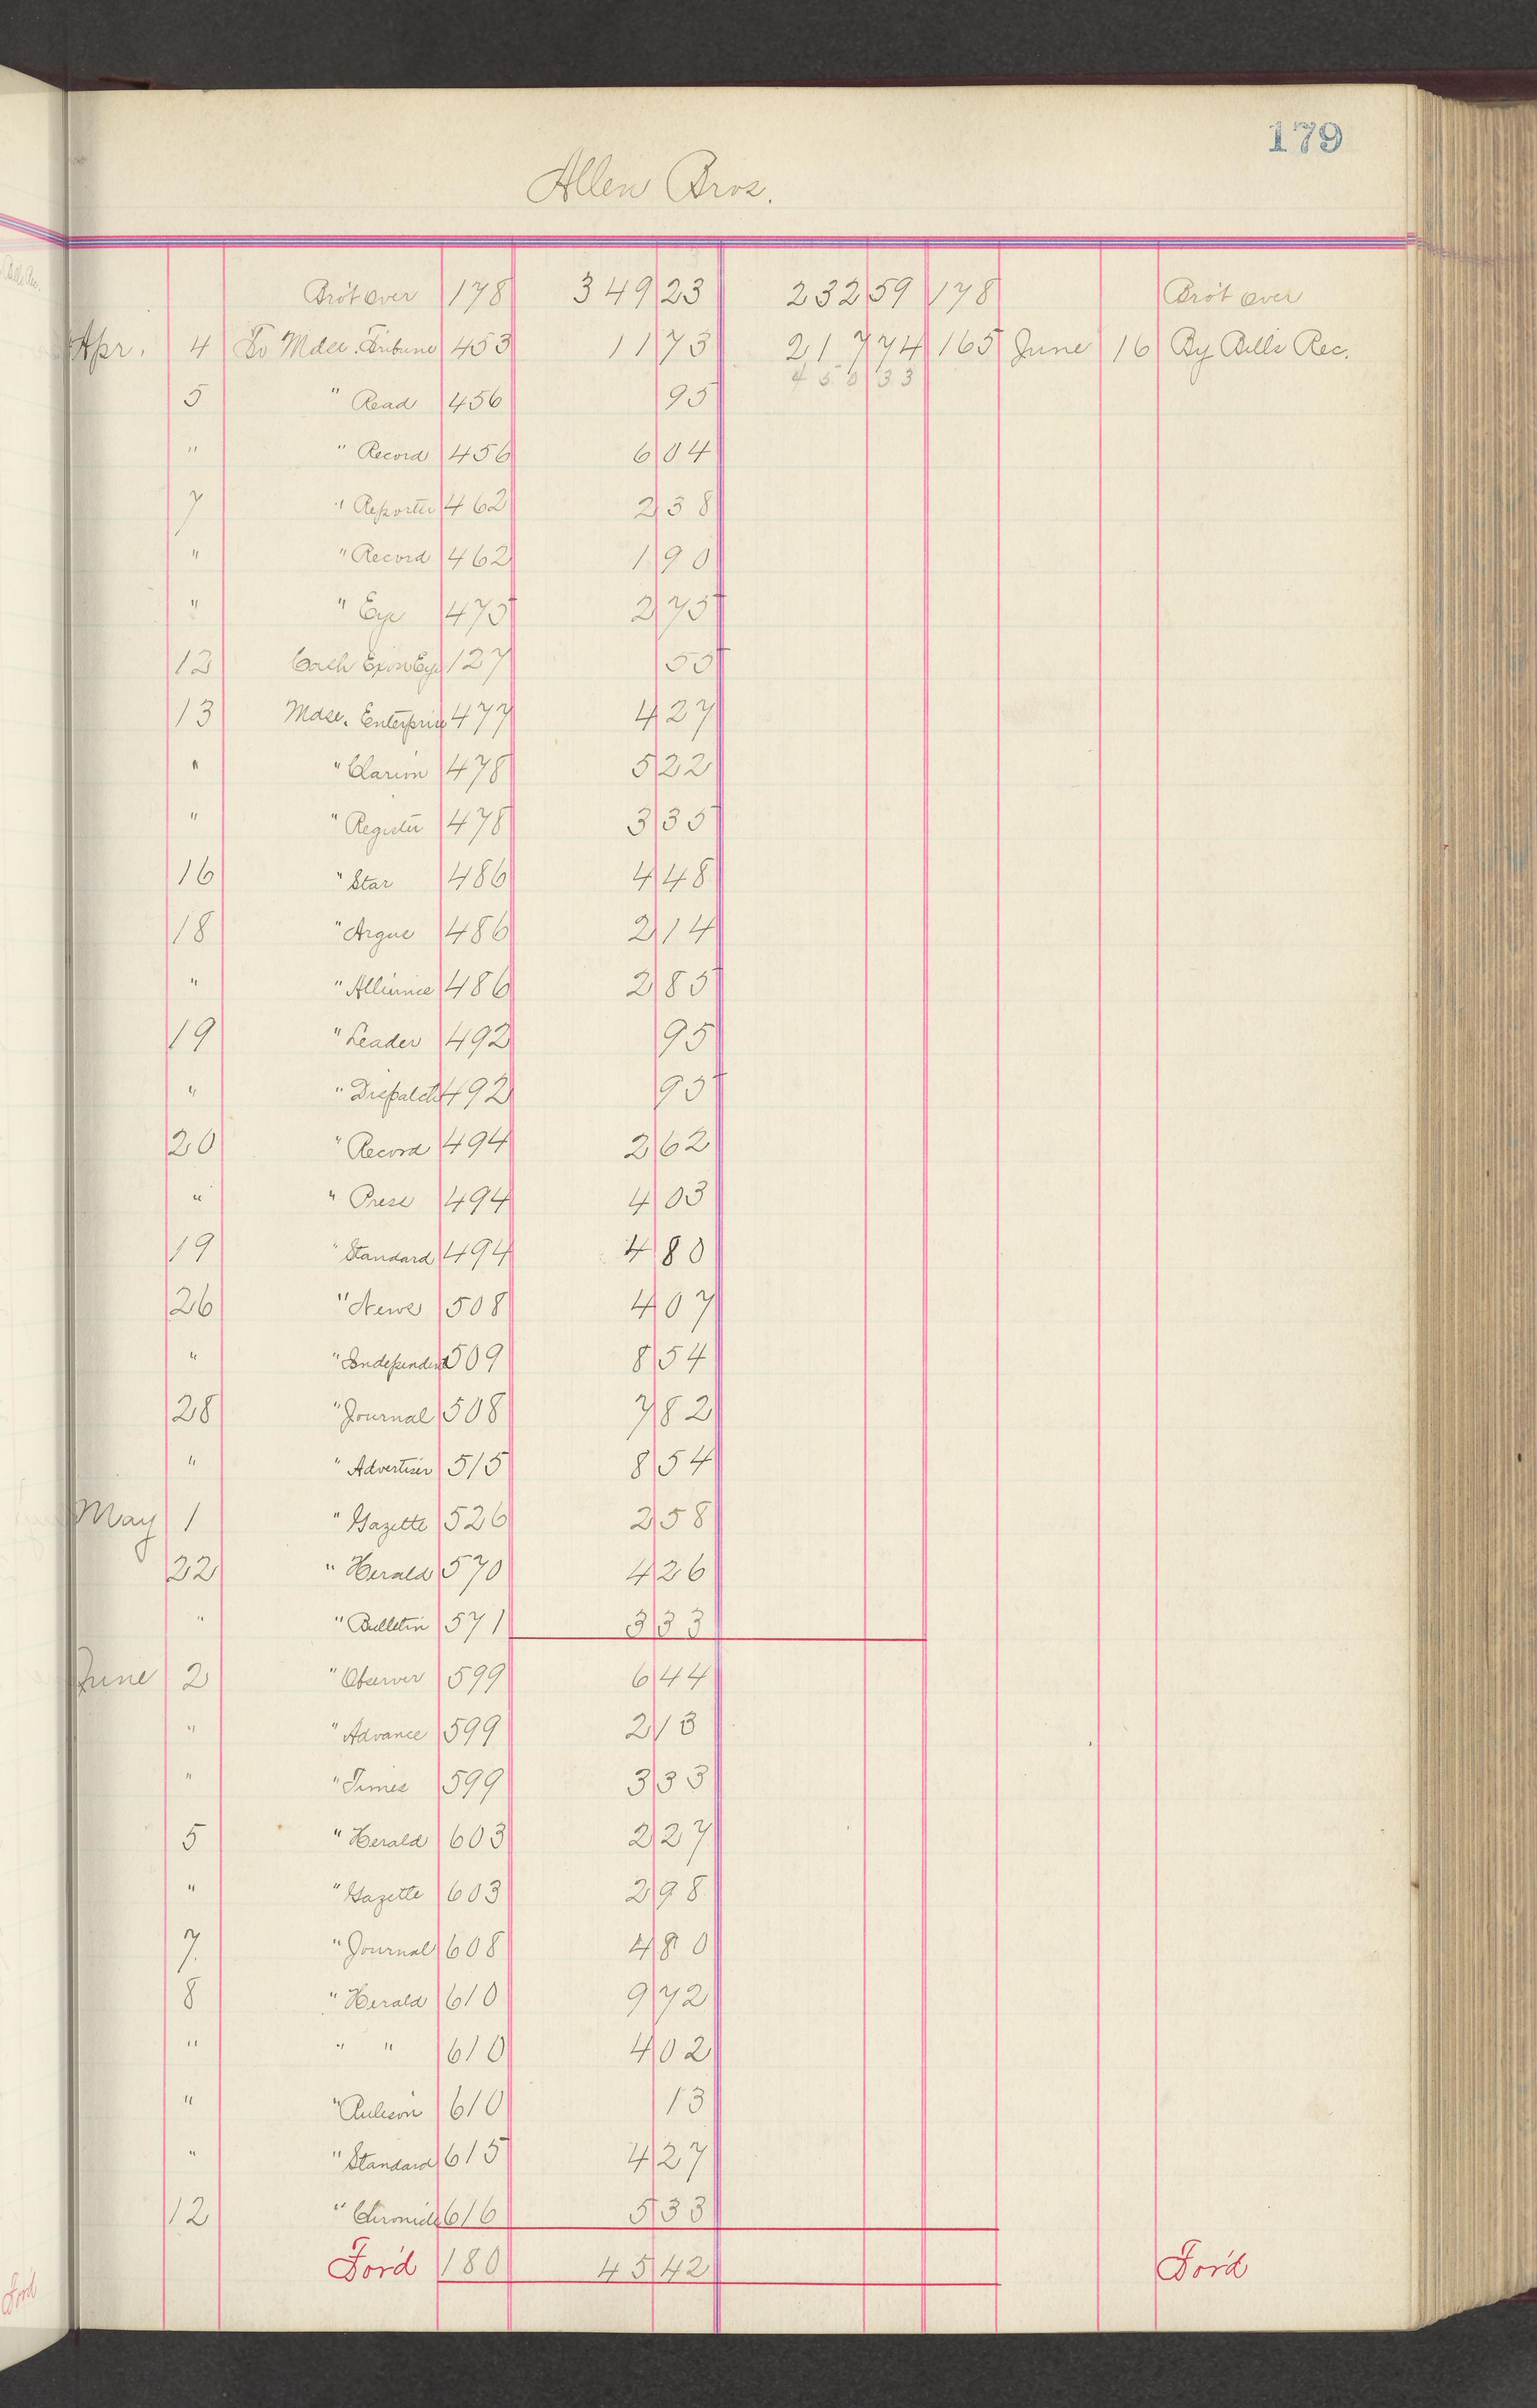 179
Allen Bros.
Bro't over 178 349 23 232 59 178 Bro't over
Apr. 4 To Mdse. Tribune 453 11 73 217 74 165 June 16 By Bills Rec.
450 33
5 " Read 456 95
" " Record 456 6 04
7 " Reporter 462 2 38
" " Record 462 1 90
" " Eye 475 2 75
12 Cash Eye 127 55
13 Mdse. Enterprise 477 4 27
" " Clarion 478 5 22
" " Register 478 3 35
16 " Star 486 4 48
18 " Argus 486 2 14
" " Alliance 486 2 85
19 " Leader 492 95
" " Dispatch 492 95
20 " Record 494 2 62
" " Press 494 4 03
19 " Standard 494 4 80
26 " News 508 4 07
" " Independent 509 8 54
28 " Journal 508 7 82
" " Advertiser 515 8 54
May 1 " Gazette 526 2 58
22 " Herald 570 4 26
" " Bulletin 571 3 33
June 2 " Observer 599 6 44
" " Advance 599 2 13
" " Times 599 3 33
5 " Herald 603 2 27
" " Gazette 603 2 98
7 " Journal 608 4 80
8 " Herald 610 9 72
" " " 610 4 02
" " 610 13
" " Standard 615 4 27
12 " Chronicle 616 5 33
For'd 180 45 42 For'd